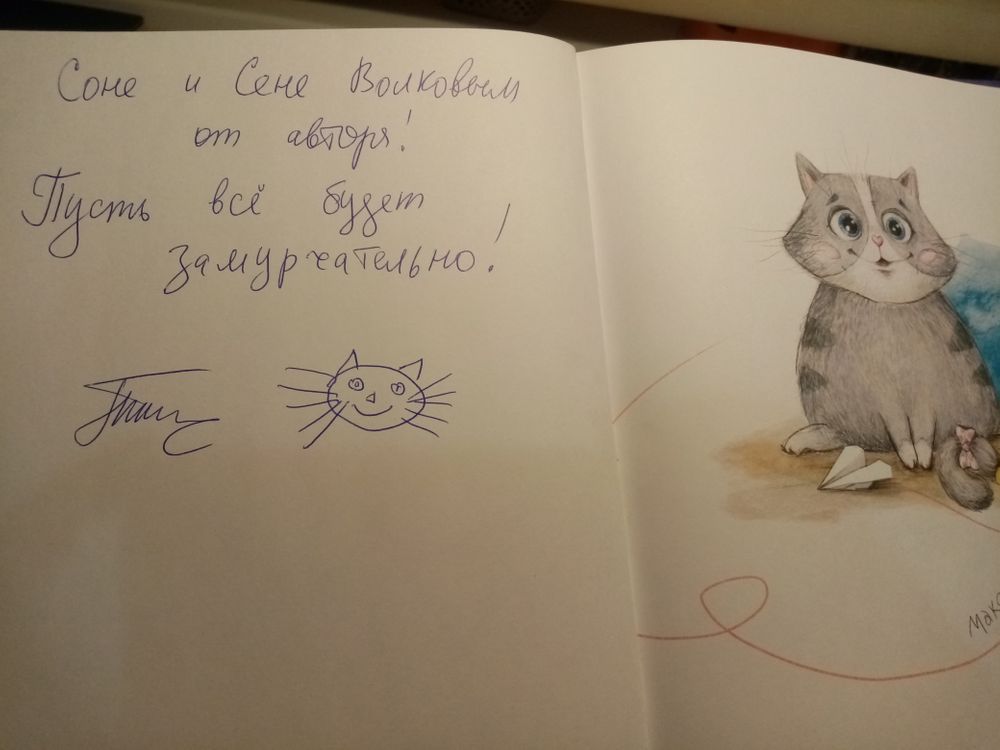 Соне и Сене Волковым
от автора!
Пусть всё будет
замурчательно!